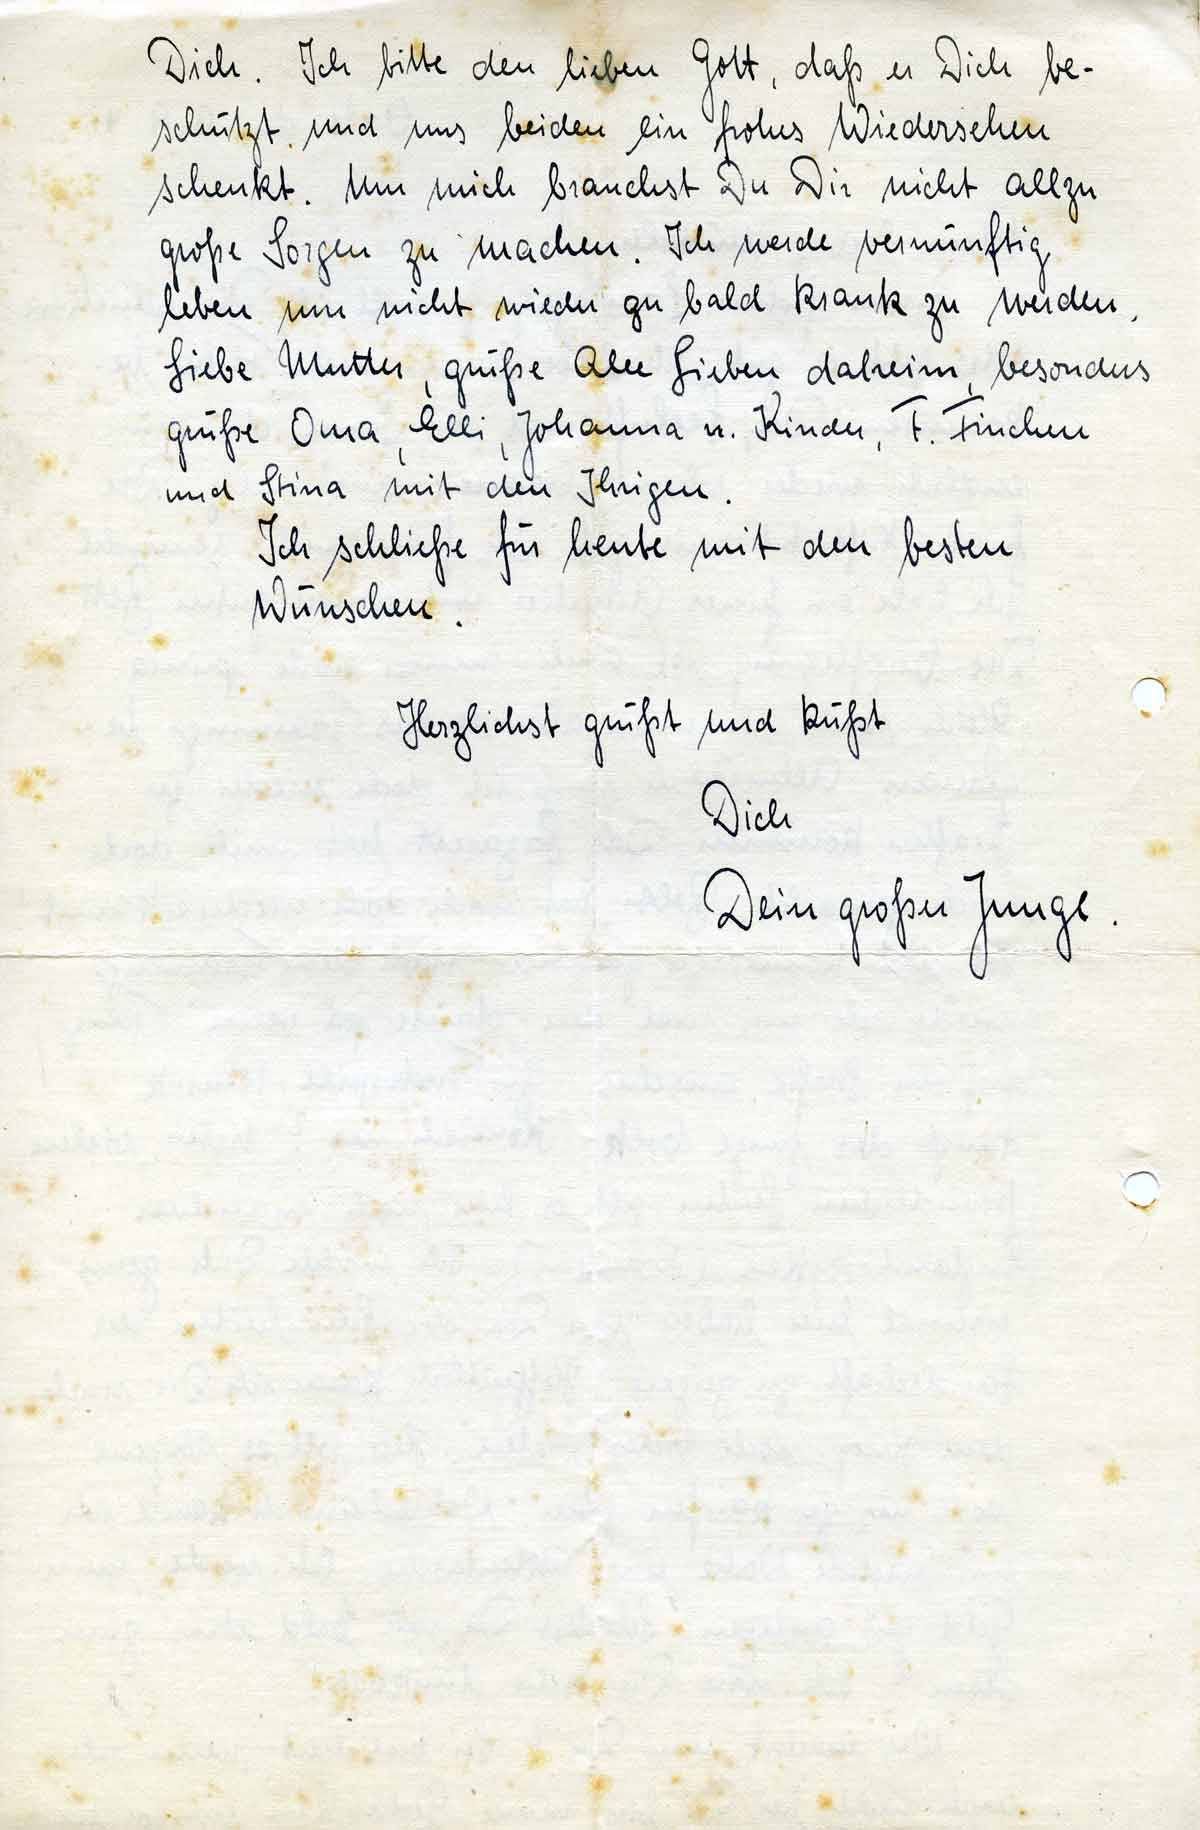 Dich. Ich bitte den lieben Gott, daß er Dich be-
schützt und uns beiden ein frohes Wiedersehen
schenkt. Um mich brauchst Du Dir nicht allzu
große Sorgen zu machen. Ich werde vernünftig
leben um nicht wieder zu bald krank zu werden.
Liebe Mutter, grüße Alle Lieben daheim, besonders
grüße Oma, Elli, Johanna u. Kinder, F. Finchen
und Stina mit den Ihrigen.
Ich schließe für heute mit den besten
Wünschen.
Herzlichst grüßt und küßt
Dich
Dein großer Junge.